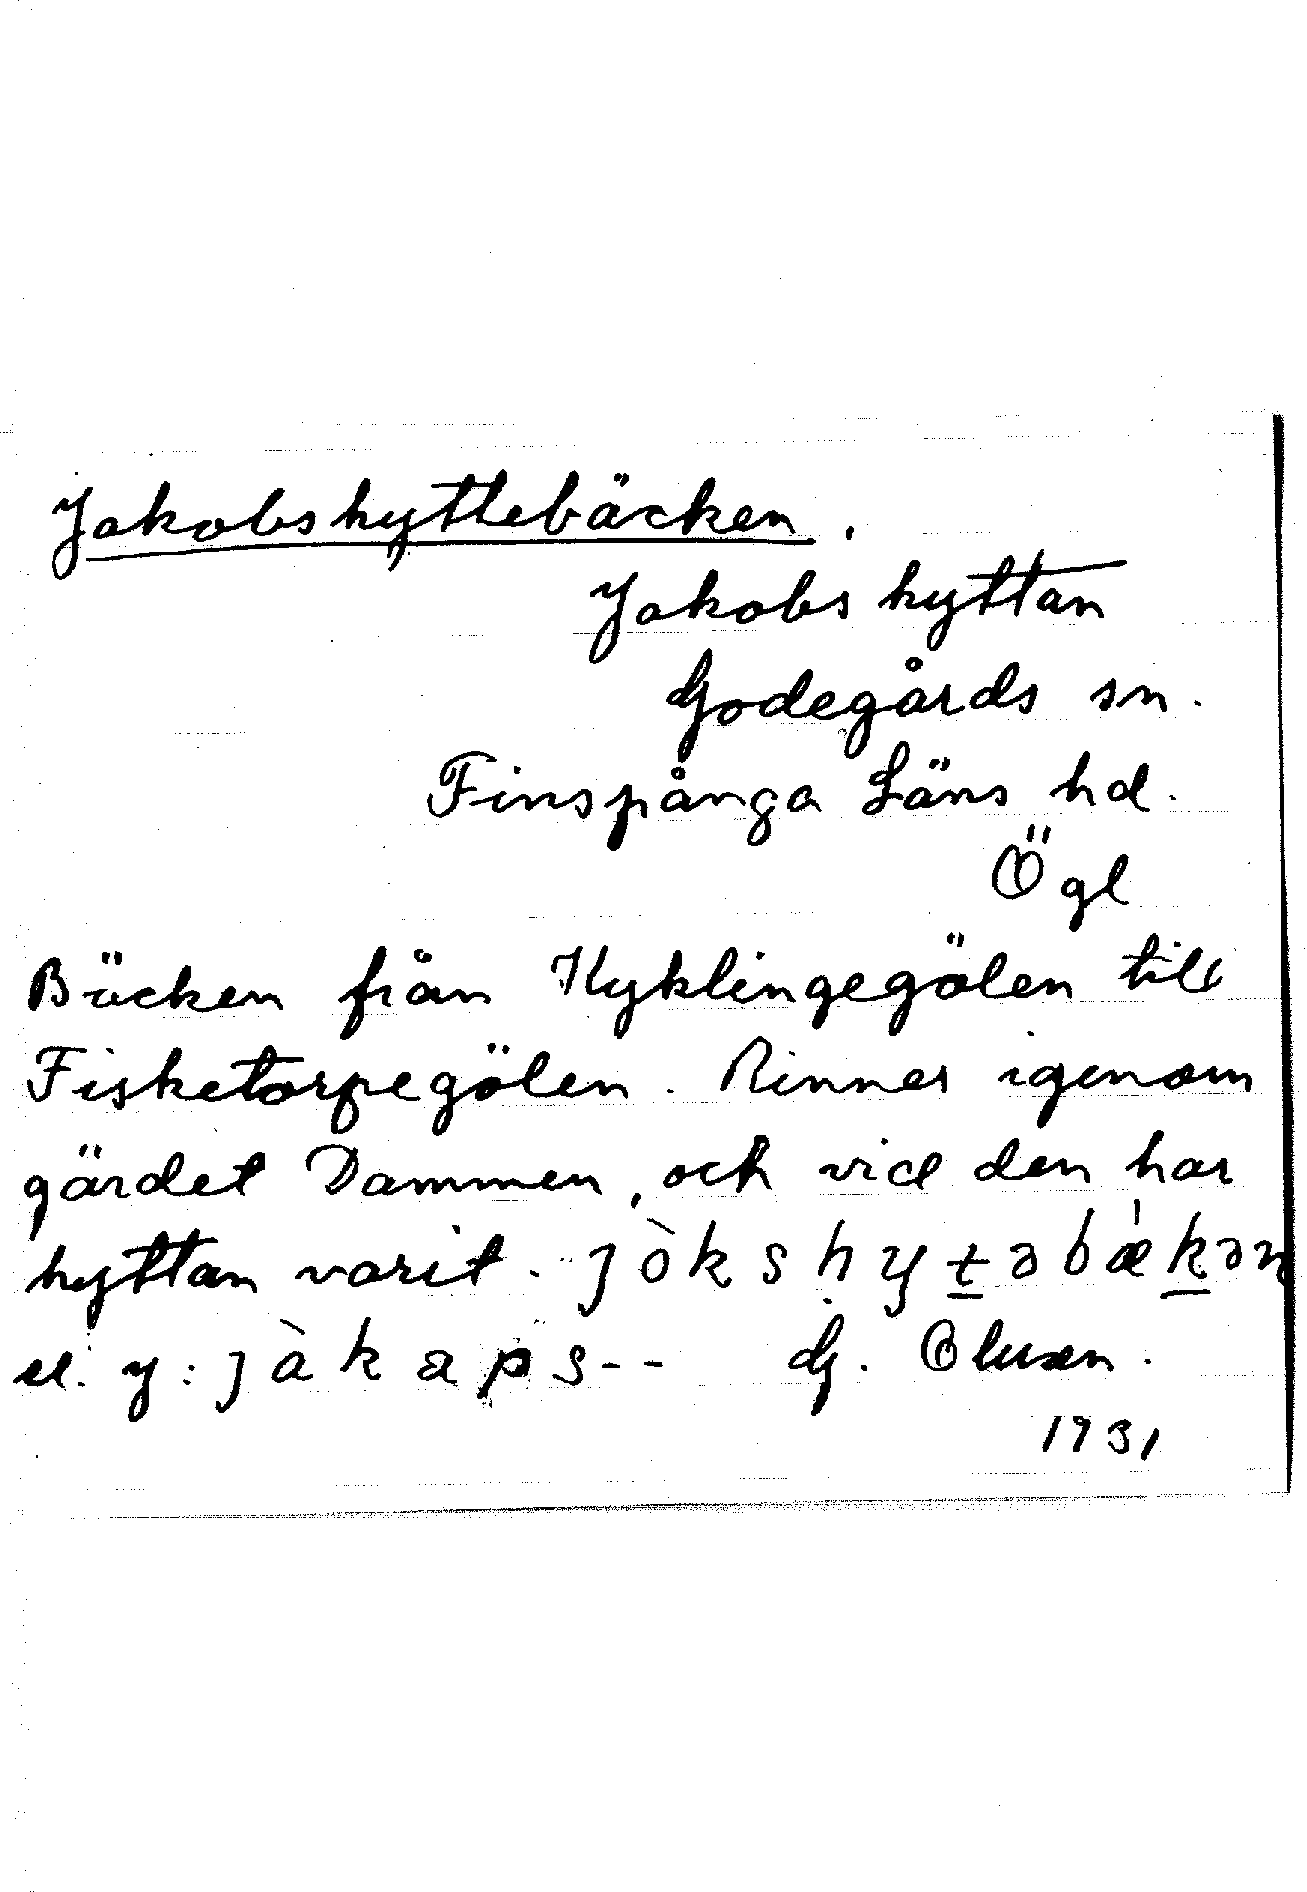 Jakobshyttebäcken.
Jakobshyttan
Godegårds sn.
Finspånga Läns hd.
Ögl
Bäcken från Kyklingegölen till
Fisketorpegölen. Rinner igenom
gärdet Dammen, och vid den har
hyttan varit. jòkshytəbækən
el. y: jàkaps-- G.
1931